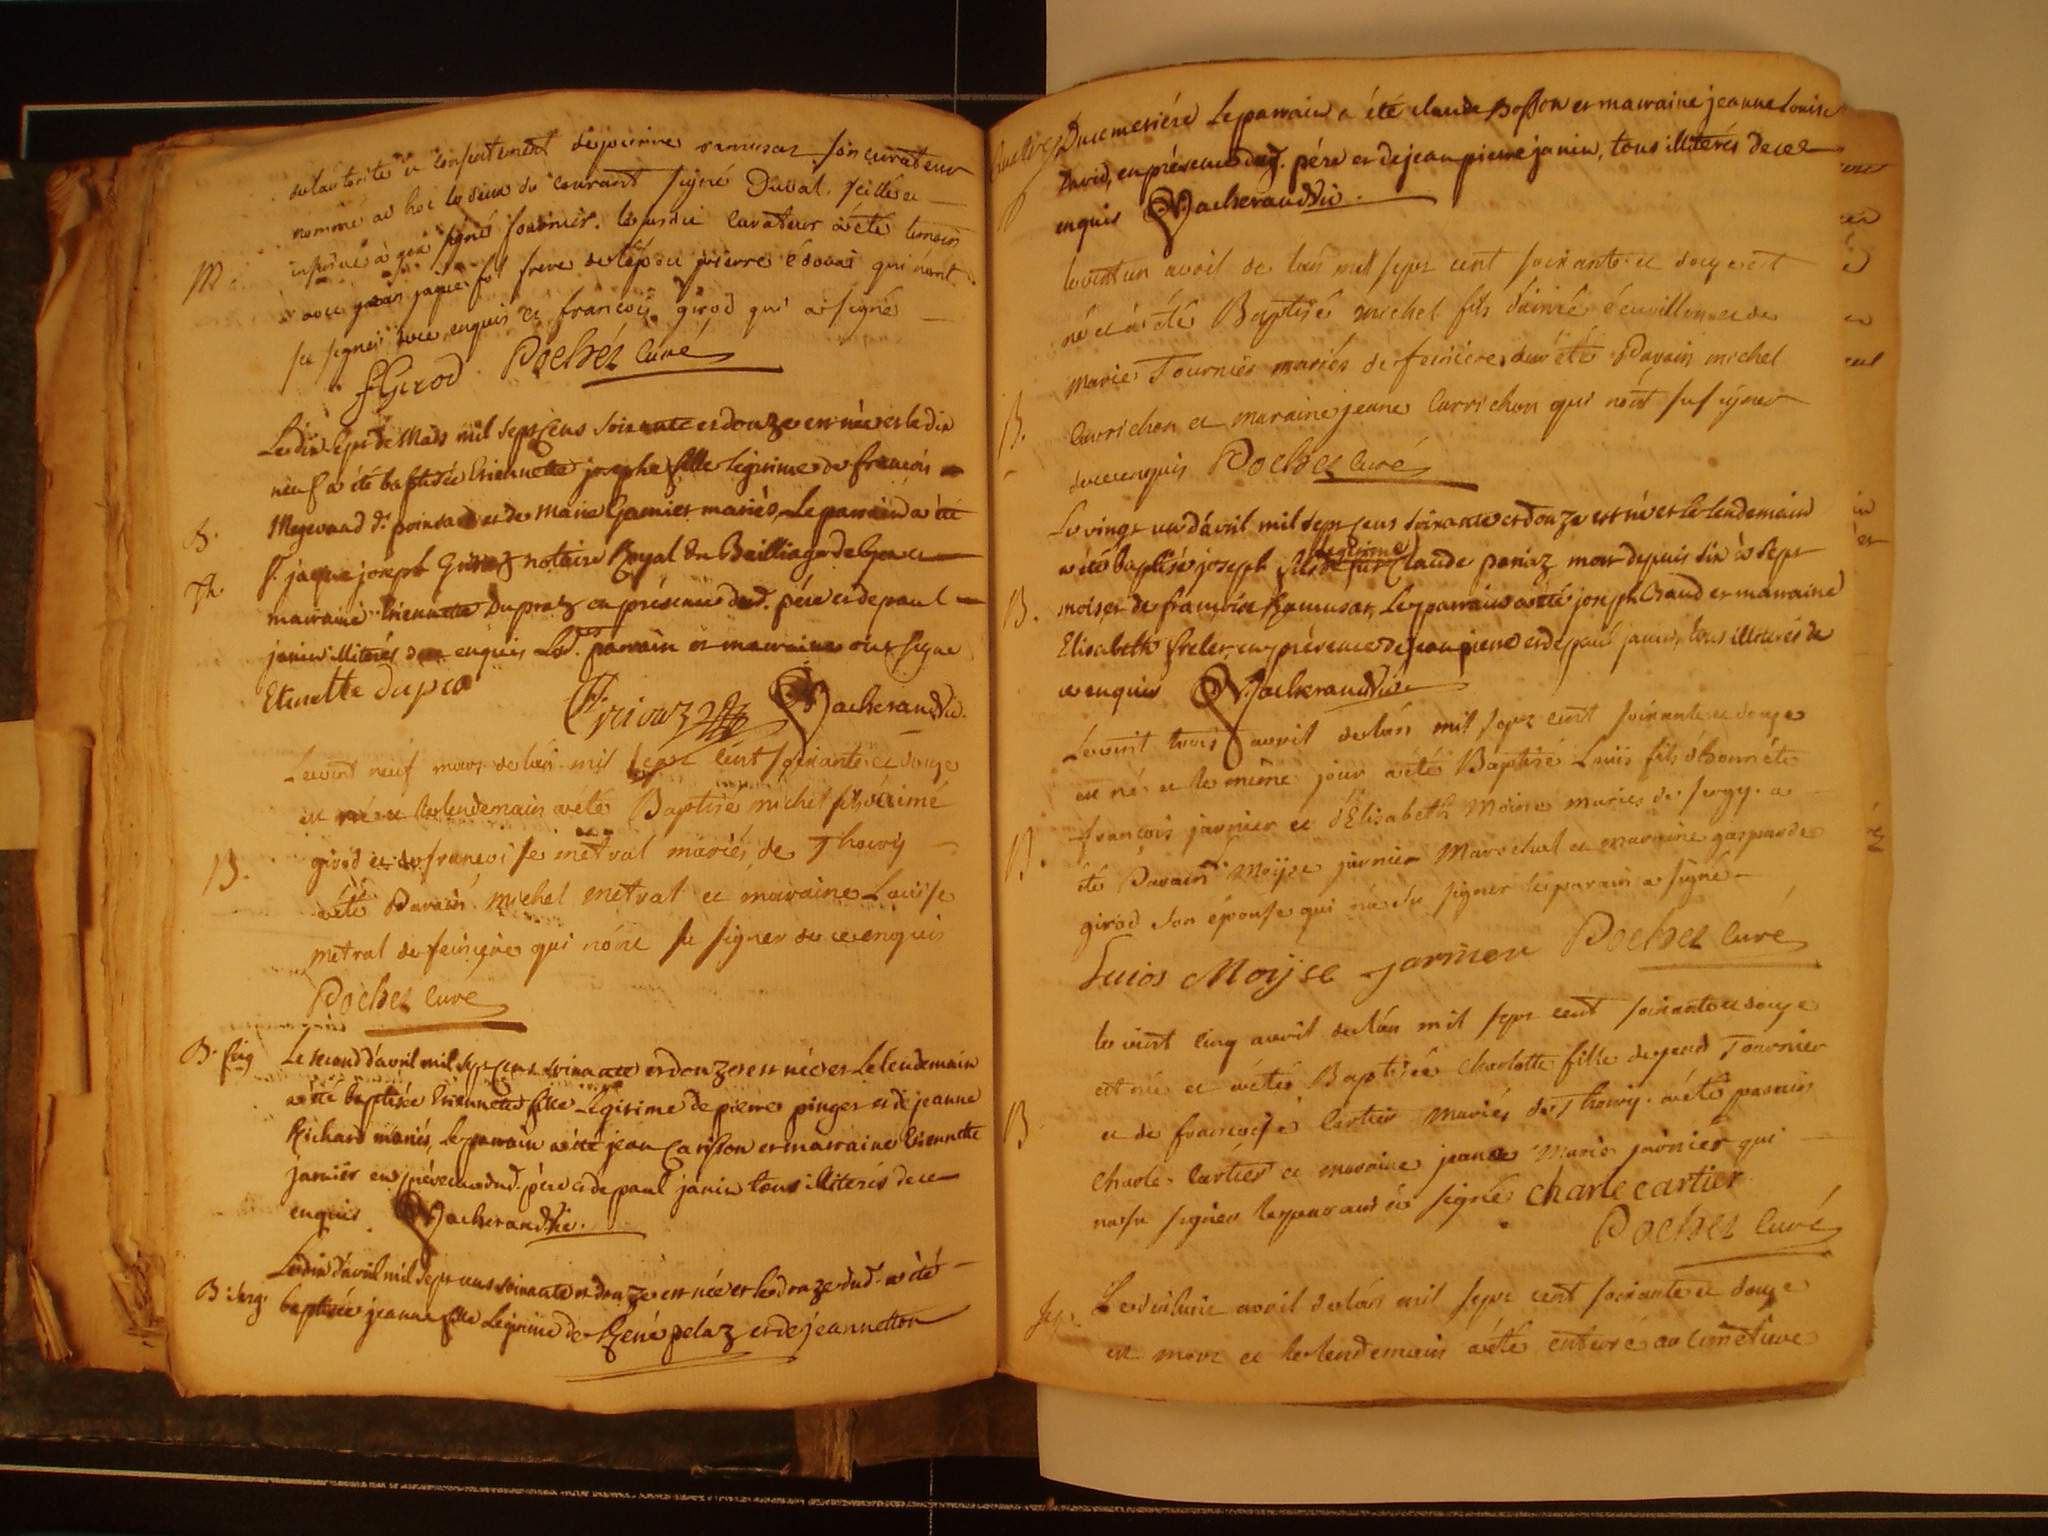 de l'autorité et consentement de pierre ramusat son curateur
nommé ad hoc le deux du courant signé Duval. scellé et
insinué a gex signé fournier. le susdit curateur a été temoin
M.
avec jean jaque fol frere de lép. et pierre édouar qui n'ont
su signer de ce enquis et francois girod qui a signé
fGirod Pochet Curé
Le dix sept de Mars mil sept cens soixante et douze est née et le dix
neuf a été baptisée Etiennette josephe fille legitime de francois
Megevand dt. et de Marie Garnier mariés. Le parrain a été
B.
Sr. jaque joseph notaire Royal du Bailliage de Gex et
Th.
marraine Etiennette Dupraz en présence dud. père et de paul
janin illiterés de ce enquis Lesd. parrain et marraine ont signé
Etienette dupra
Macherand Vic.
Le vint neuf mars de lan mil sept cent soixante et douze
est né et le lendemain a été Baptisé michel fils d'aimé
girod et de francoise métral mariés de Thoiry
B.
a été Parain michel metral et maraine Louise
metral de feniere qui n'ont su signer de ce enquis
Pochet Curé
B. Le second d'avril mil sept cens soixante et douze est née et Le lendemain
a été baptisée Etiennette fille Legitime de pierre pinger et de jeanne
Richard mariés, Le parrain a été jean Carisson et marraine Etiennette
jarnier en présence dud. père et de paul janin tous illiterés de ce
enquis Macherand Vic.
Le dix d'avril mil sept cens soixante et douze est née et le douze dud. a été
B: Serg:
baptisée jeanne fille Legitime de René pelaz et de jeannetton
Ducimetiére Le parrain a été claude Bosson et marraine jeanne Louise
David, en présence dud. père et de jean pierre janin, tous illiterés de ce
enquis Macherand Vic.
le vint un avril de lan mil sept cent soixante et douze est
né et a été Baptisé michel fils d'aimé écuvillon et de
marie Tournier mariés de feniere. a été Parain michel
B.
Currichon et maraine jeane Currichon qui n'ont su signer
de ce enquis Pochet Curé
Le vingt un d'avril mil sept cens soixante et douze est né et Le lendemain
a été baptisé joseph fils legitime Claude paniaz mort depuis six à sept
B.
mois et de francoise Ramusat, Le parrain a été joseph Chaud et marraine
Elisabeth en présence de jean pierre et de paul janin, tous illiterés de
ce enquis Macherand Vic.
Le vint trois avril de lan mil sept cent soixante et douze
est né et le même jour a été Baptisé Louis fils d'honnéte
françois jarnier et d'Elisabeth Moine mariés de sergy. a
B.
été Parain Moÿse jarnier Marechal et maraine gasparde
girod son épouse qui n'a su signer le parain a signé
Luios Moÿse jarnier Pochet Curé
le vint cinq avril de lan mil sept cent soixante et douze
est née et a été Baptisée Charlotte fille de jean Tournier
B
et de francoise Cartier mariés de Thoiry. a été parain
Charle Cartier et maraine jeane Marie jarnier qui
na su signer le parain a signé Charle cartier
Pochet Curé
Sep. Le dixhuit avril de lan mil sept cent soixante et douze
est mort et le lendemain a été enterré au cimetiere